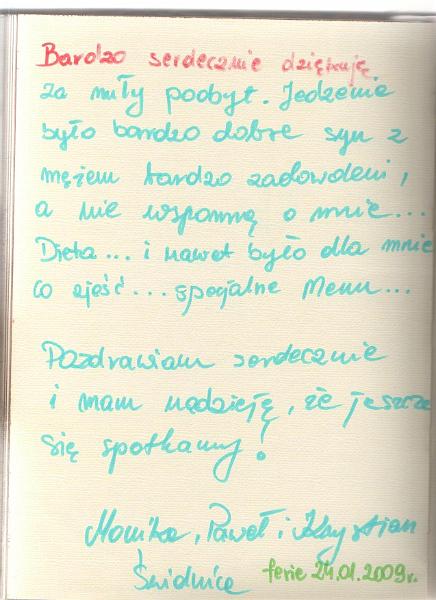 Bardzo serdecznie dziękuję
za miły poobyt. Jedzenie
było bardzo dobre syn z
mężem bardzo zadowoleni,
a nie wspomnę o mnie...
Dieta... i nawet było dla mnie
co zjeść... specjalne Menu...
Pozdrawiam serdecznie
i mam nadzieję, że jeszcze
się spotkamy!
Monika, Paweł i Krystian
Świdnica
ferie 24.01.2009r.